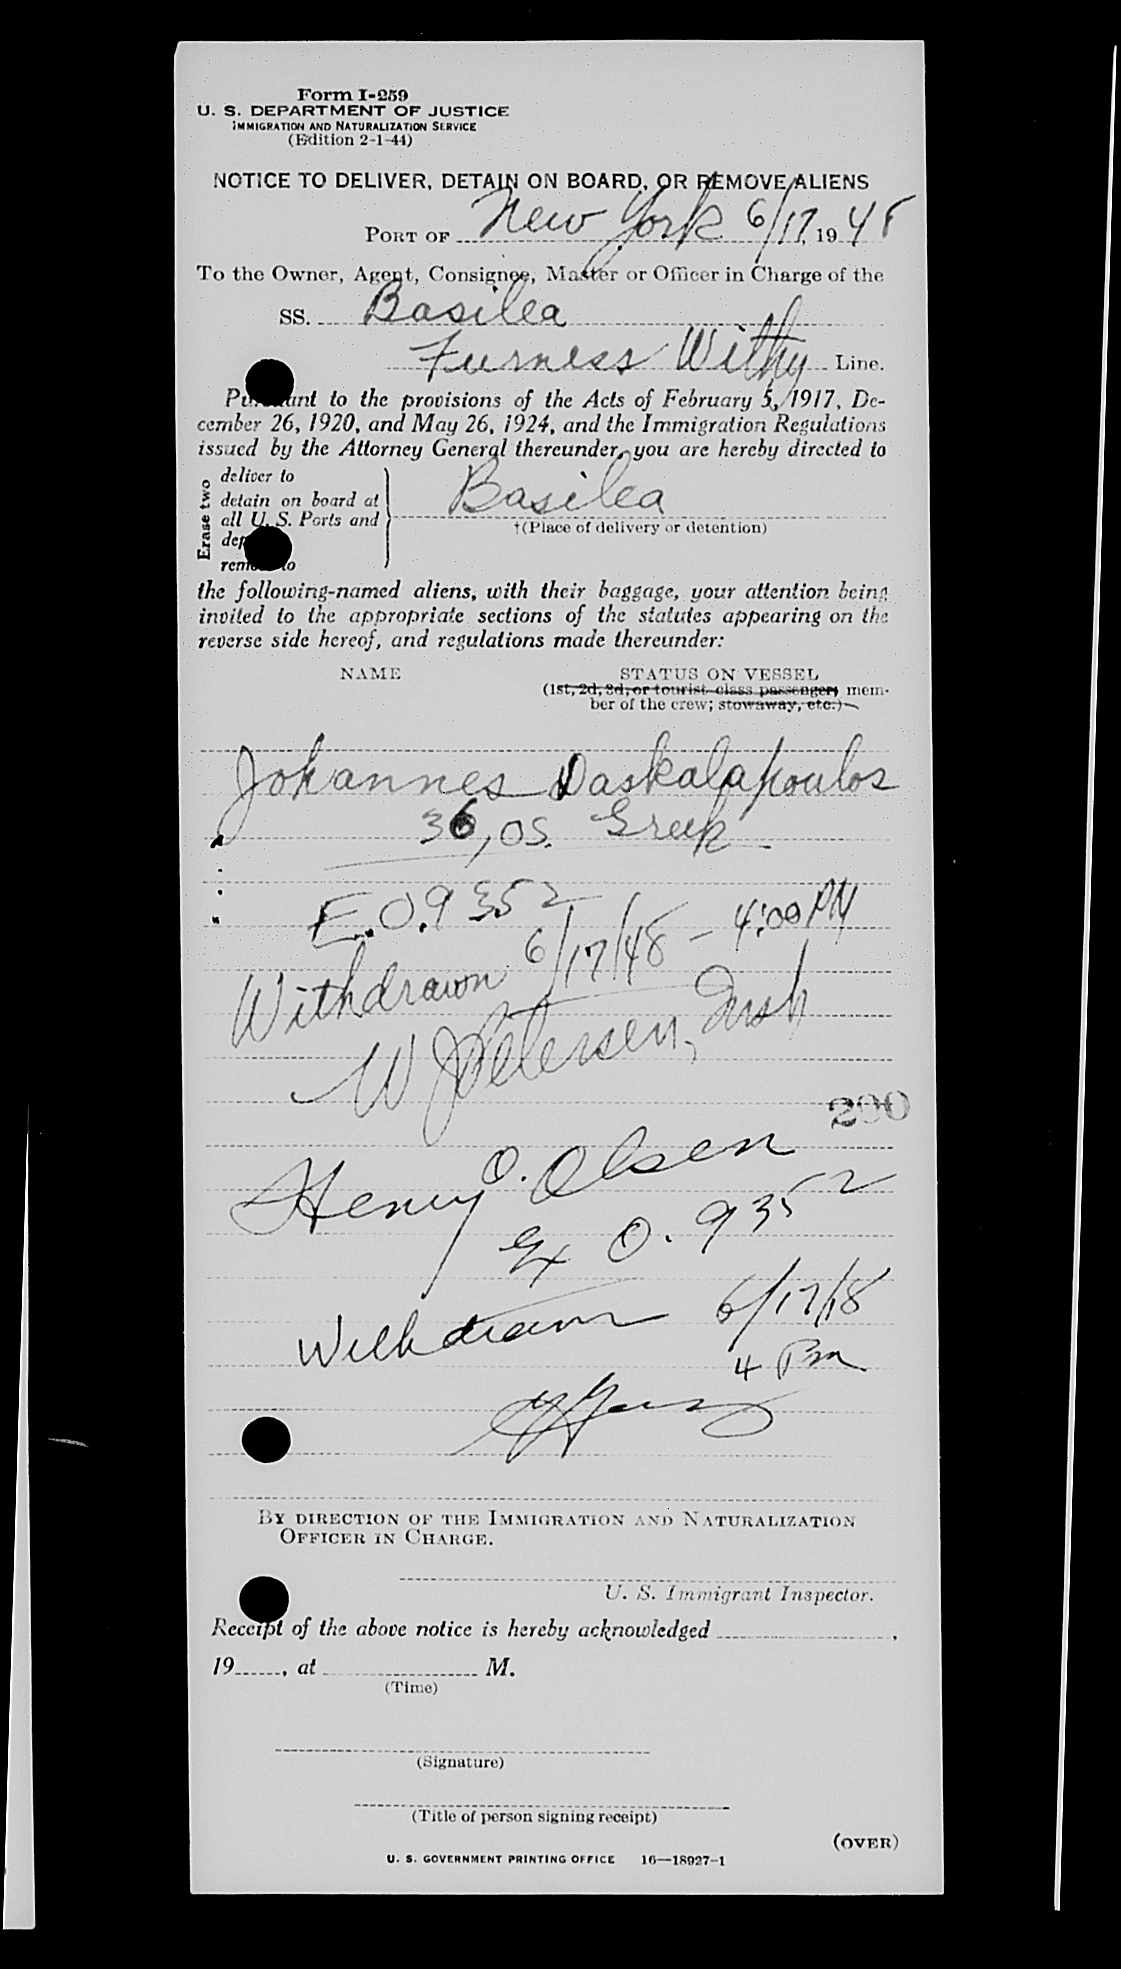 Form I-259
U. S. DEPARTMENT OF JUSTICE
IMMIGRATION AND NATURALIZATION SERVICE
(Edition 2-1-44)
NOTICE TO DELIVER, DETAIN ON BOARD, OR REMOVE ALIENS
PORT OF New York 6/17, 1948
To the Owner, Agent, Consignee, Master or Officer in Charge of the
SS. Basilea
Furness Withy Line.
Pursuant to the provisions of the Acts of February 5, 1917, De-
cember 26, 1920, and May 26, 1924, and the Immigration Regulations
issued by the Attorney General thereunder, you are hereby directed to
Erase two
deliver to
detain on board at
all U. S. Ports and
remove to
Basilea
†(Place of delivery or detention)
the following-named aliens, with their baggage, your attention being
invited to the appropriate sections of the statutes appearing on the
reverse side hereof, and regulations made thereunder:
NAME STATUS ON VESSEL
(1st, 2d, 3d, or tourist class passenger; mem-
ber of the crew; stowaway, etc.)
Johannes Daskalapoulos
36, OS. Greek
E.O. 9352
Withdrawn 6/17/48 - 4:00 PM
W J Petersen,
290
Henry O. Olsen
Ex O. 9352
Withdrawn 6/17/48
4 Pm
BY DIRECTION OF THE IMMIGRATION AND NATURALIZATION
OFFICER IN CHARGE.
U. S. Immigrant Inspector.
Receipt of the above notice is hereby acknowledged ,
19 , at M.
(Time)
(Signature)
(Title of person signing receipt)
(OVER)
U. S. GOVERNMENT PRINTING OFFICE 16—18927-1